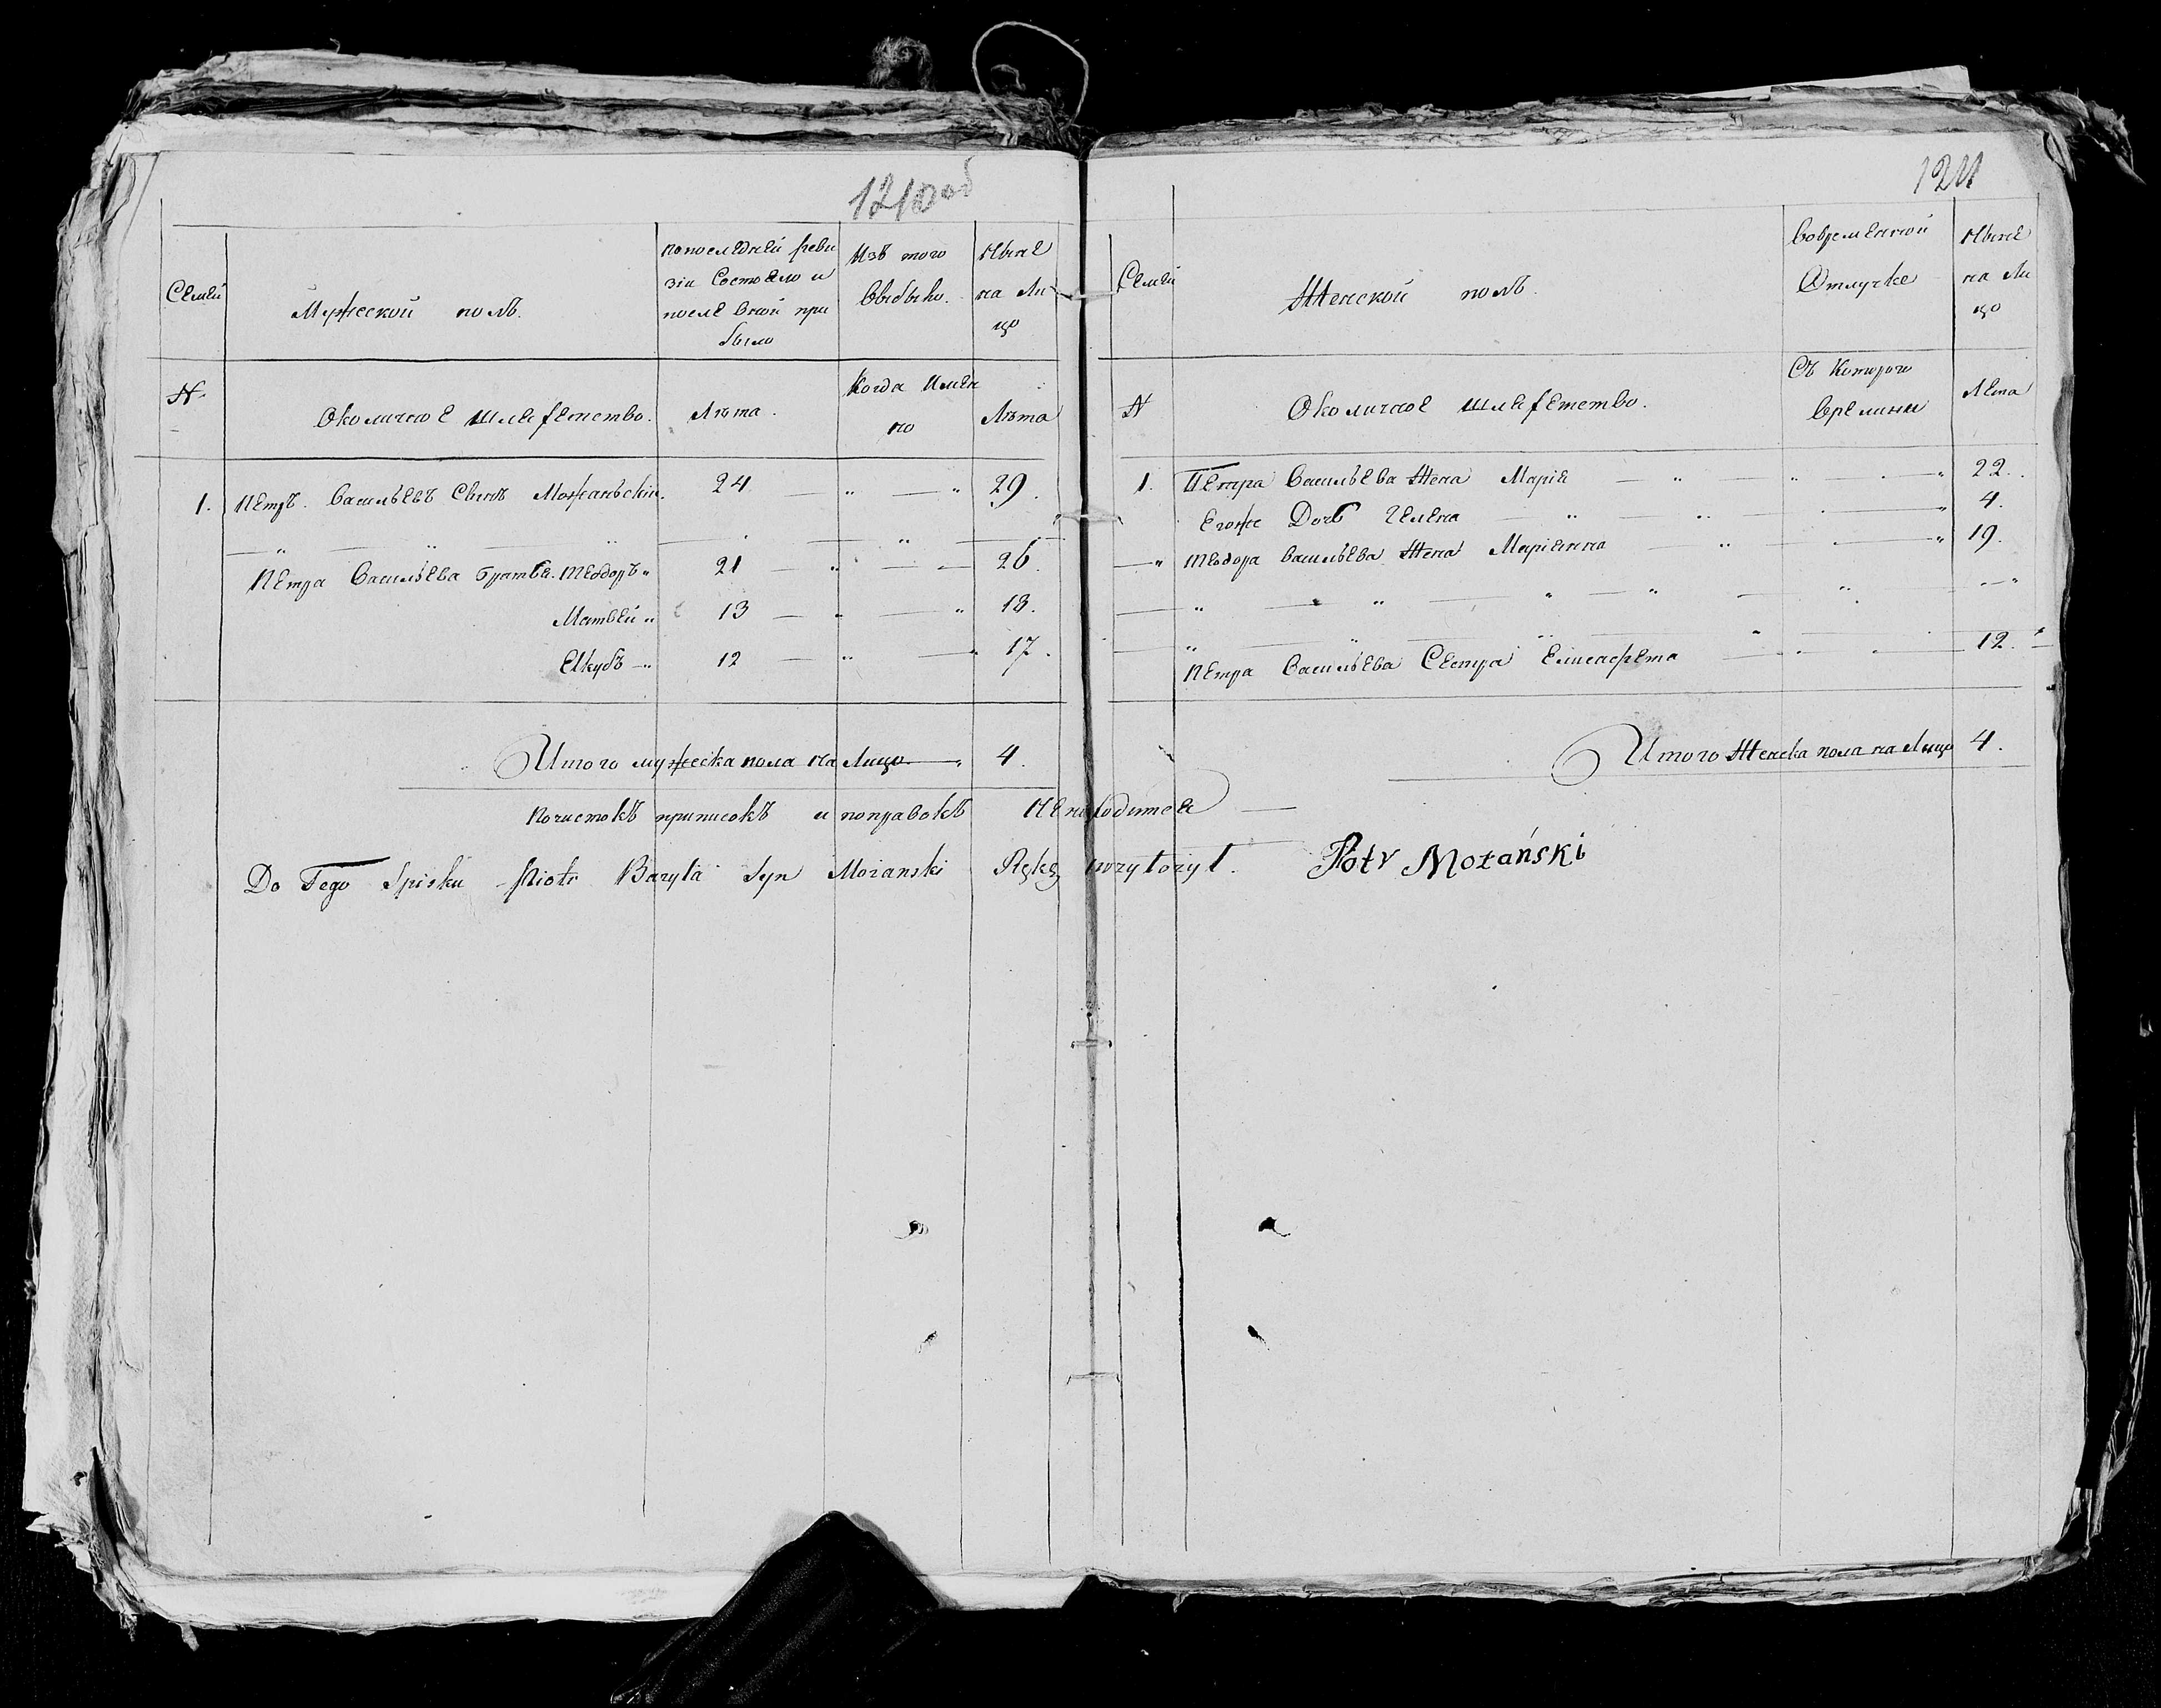 1210 об
Семьи
Мужеской полъ.
попоследней реви
зіи Состояло и
после оной при
было
Изъ того
выбыло.
Ныне
на Ли
цо
№
Околичное шляхетство.
Лѣта.
Когда Имен
но
Лѣта
1. Петръ Васильевъ Сынъ Можаньскій. 24 — „ — „ 29.
Петра Васильева братья. Теодоръ „ 21 — „ — 26.
Матвей „ 13 — „ — „ 18.
Якубъ — „ 12 — „ — „ 17.
Итого мужеска пола на Лицо — „ 4.
Почистокъ приписокъ и поправокъ Ненаходится —
Do Tego Spisku Piotr Bazyla Syn Możanski Rękę przyłożył. Piotr Możański
121
Семьи
Женской полъ.
Вовременной
Отлучке
Ныне
на Ли
цо
№
Околичное шляхетство.
Съ Которого
времини
Лета
1. Петра Васильева Жена Марія — „ „ — „ 22.
Егоже Дочь Гелена — „ — „ — „ 4.
— „ Теодора Васильева Жена Маріянна — „ — „ 19.
Петра Васильева Сестра Елисавета — „ „ — 12.
Итого Женска пола на Лицо 4.